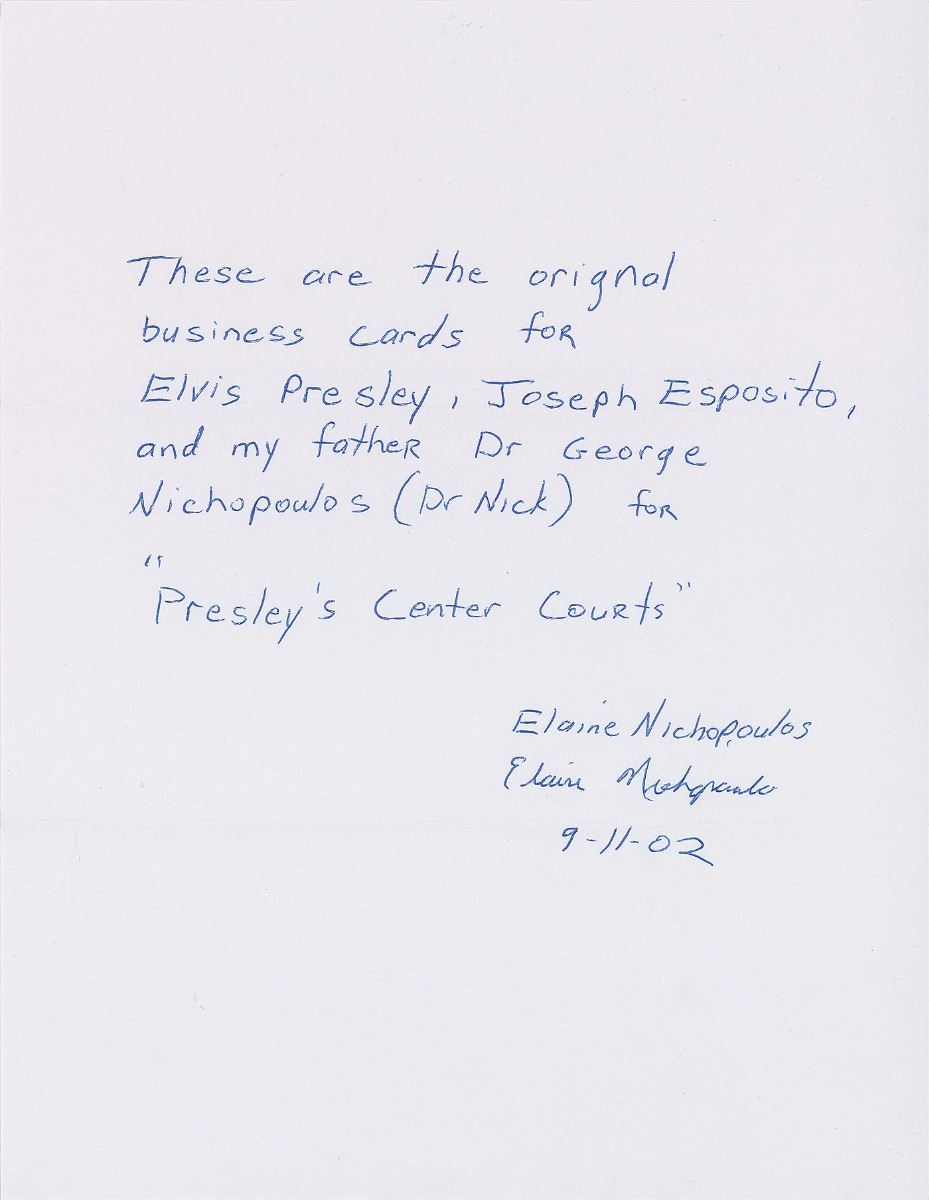 These are the orignal
business cards for
Elvis Presley, Joseph Esposito,
and my father Dr George
Nichopoulos (Dr Nick) for
"Presley's Center Courts"
Elaine Nichopoulos
Elaine Nichopoulos
9-11-02